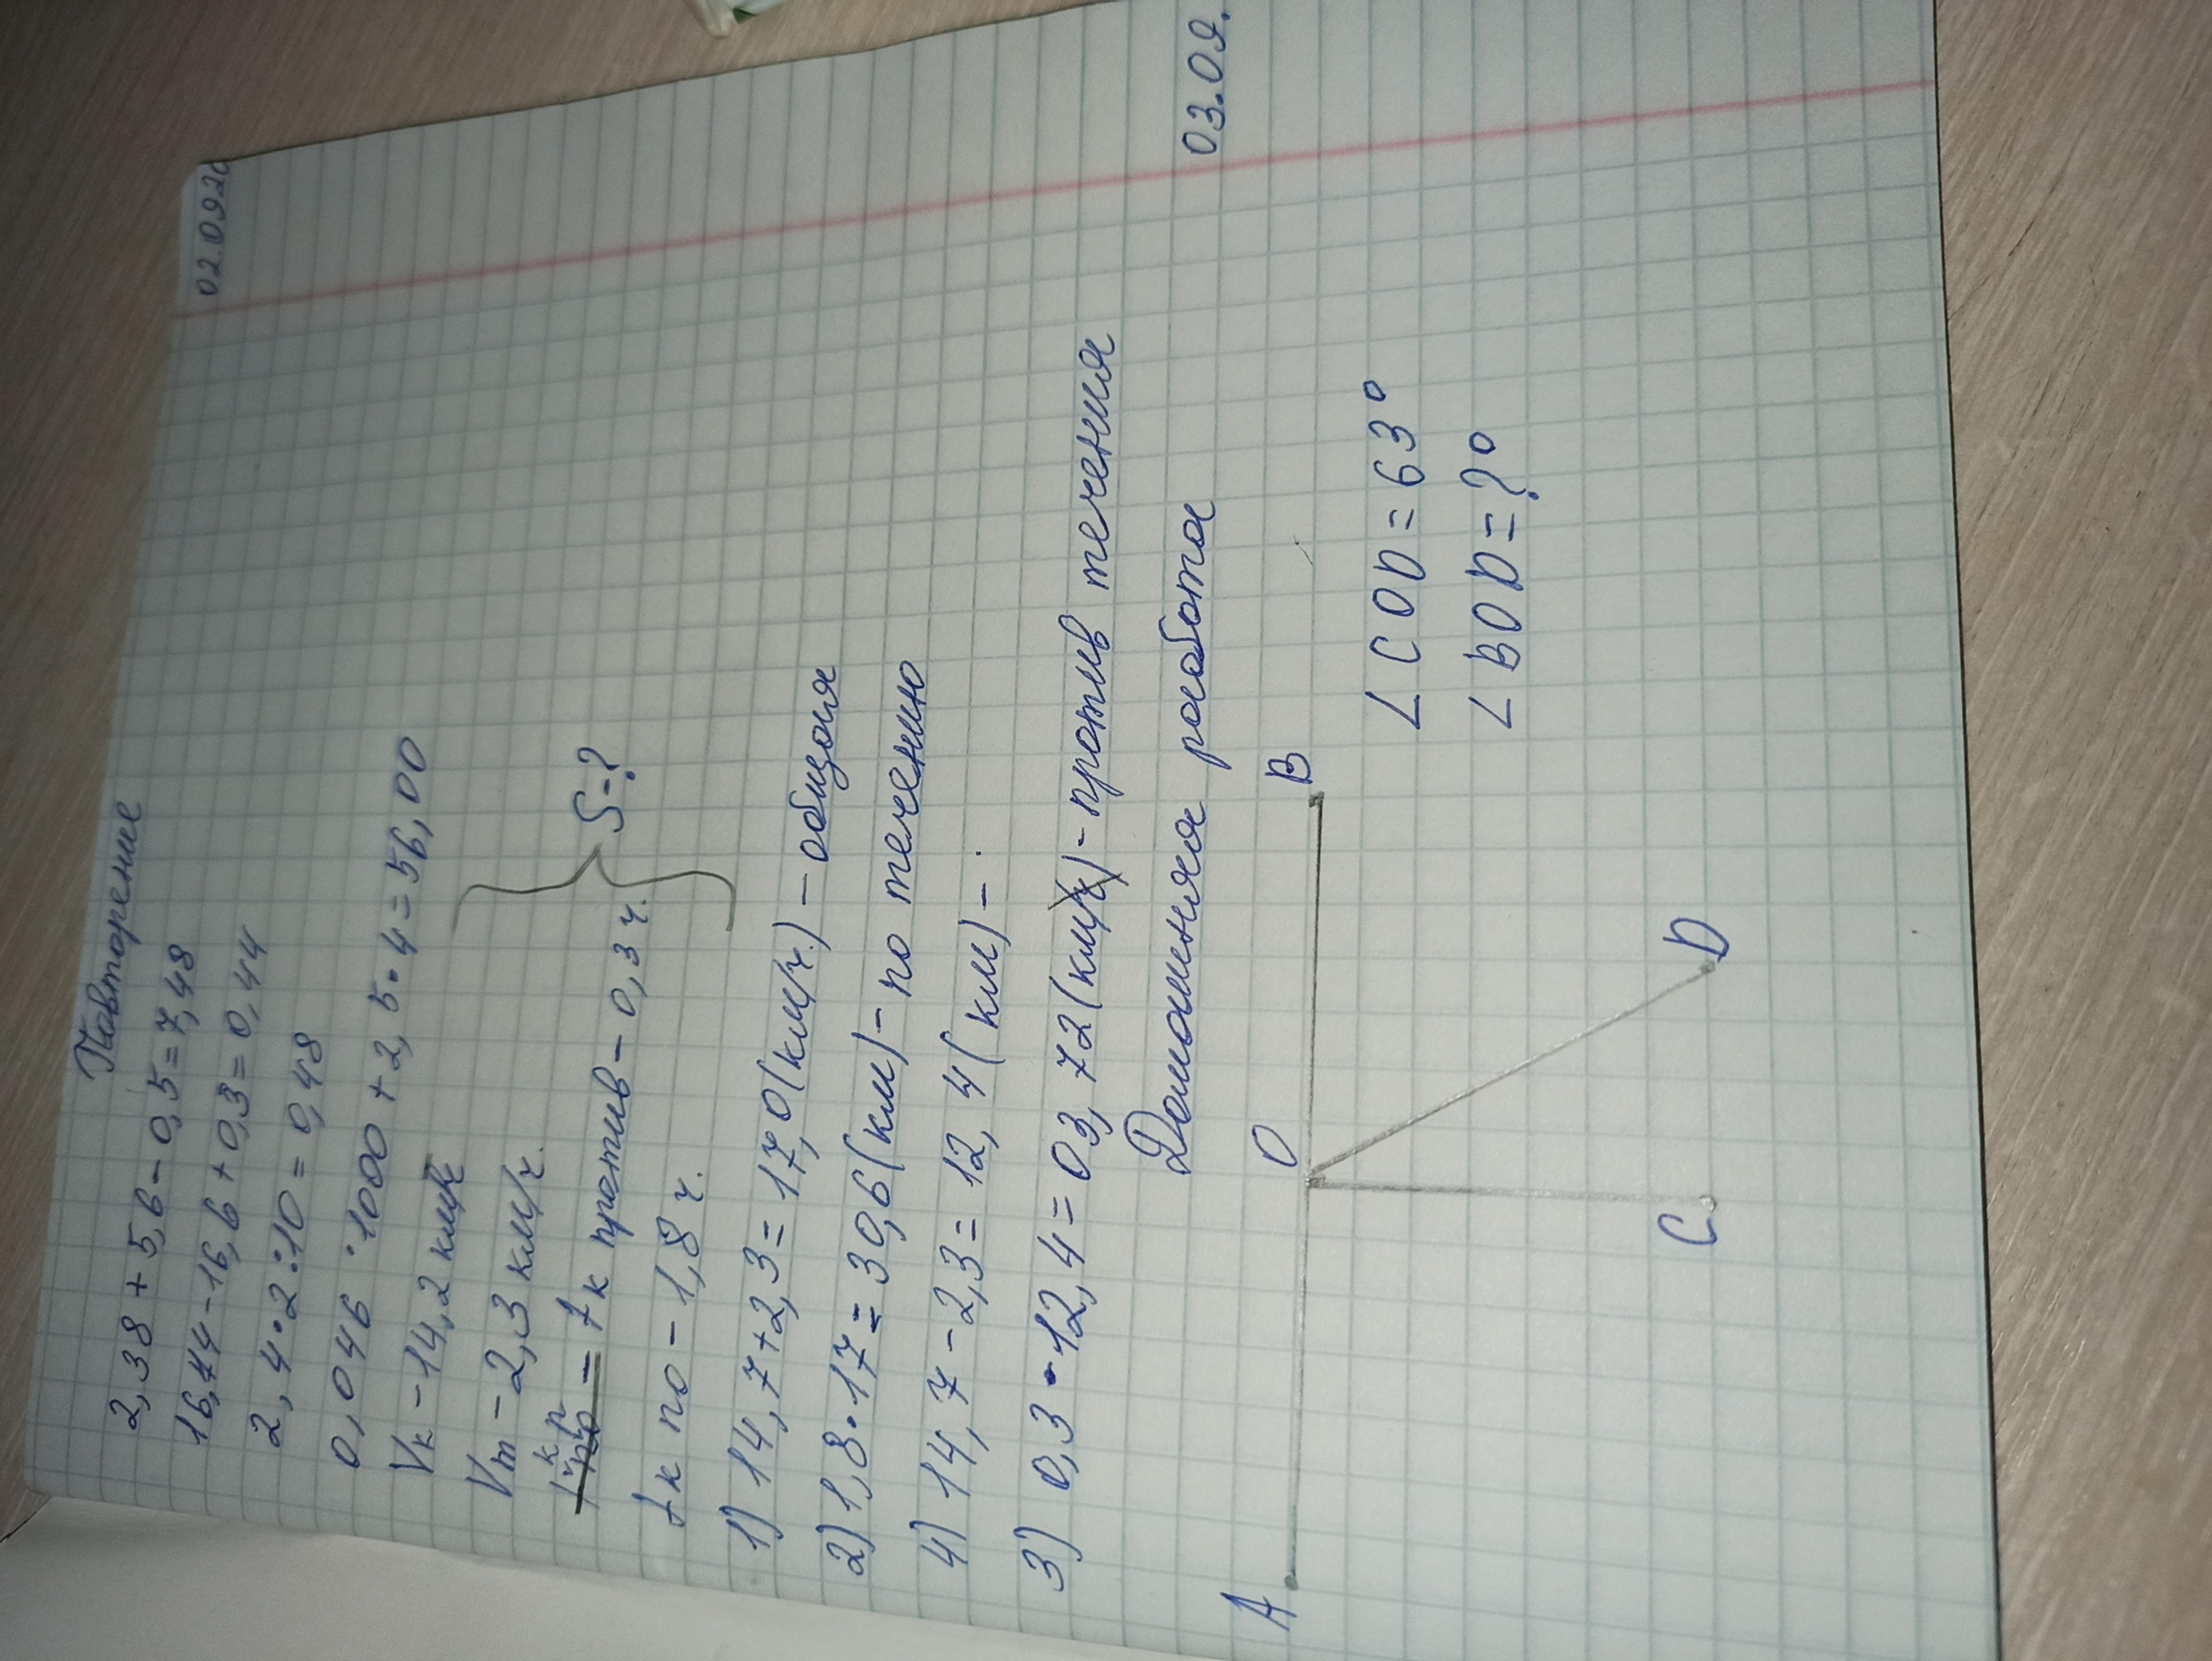 02.09.20
Повторение
2,38 + 5,6 - 0,5 = 7,48
16,74 - 16,6 + 0,3 = 0,44
2,4 · 2 : 10 = 0,48
0,046 · 1000 + 2,5 · 4 = 56,00
Vк - 14,2 км/ч
Vт - 2,3 км/ч.
tк против - 0,3 ч.
S - ?
tк по - 1,8 ч.
1) 14,7 + 2,3 = 17,0 (км/ч.) - общая
2) 1,8 · 17 = 30,6 (км) - по течению
4) 14,7 - 2,3 = 12,4 (км) -
3) 0,3 · 12,4 = 03,72 (км/ч) - против течения
03.09.
Домашняя работа
A O B
∠COD = 63°
∠BOD = ?°
C D